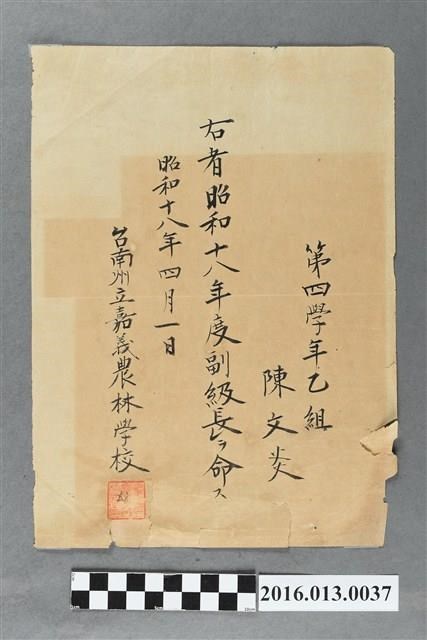 第四學年乙組
陳文炎
右者昭和十八年度副級長ヲ命ス
昭和十八年四月一日
台南州立嘉義農林學校
2016.013.0037